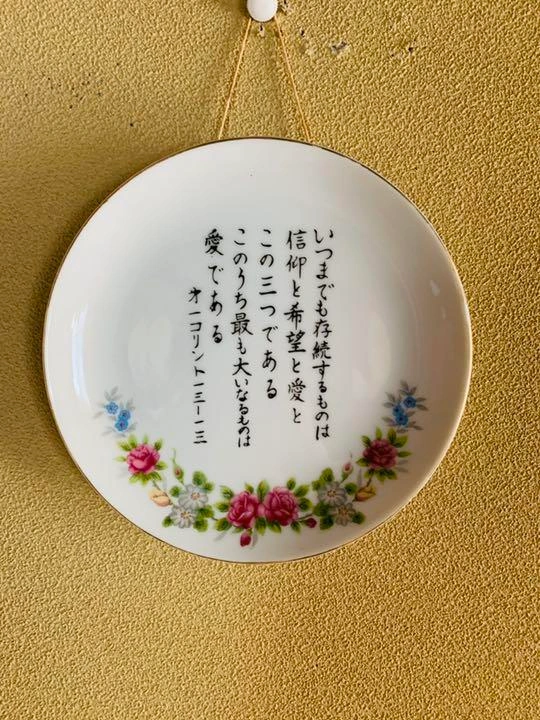 いつまでも存続するものは
信仰と希望と愛と
この三つである
このうち最も大いなるものは
愛である
オ一コリント一三ー一三